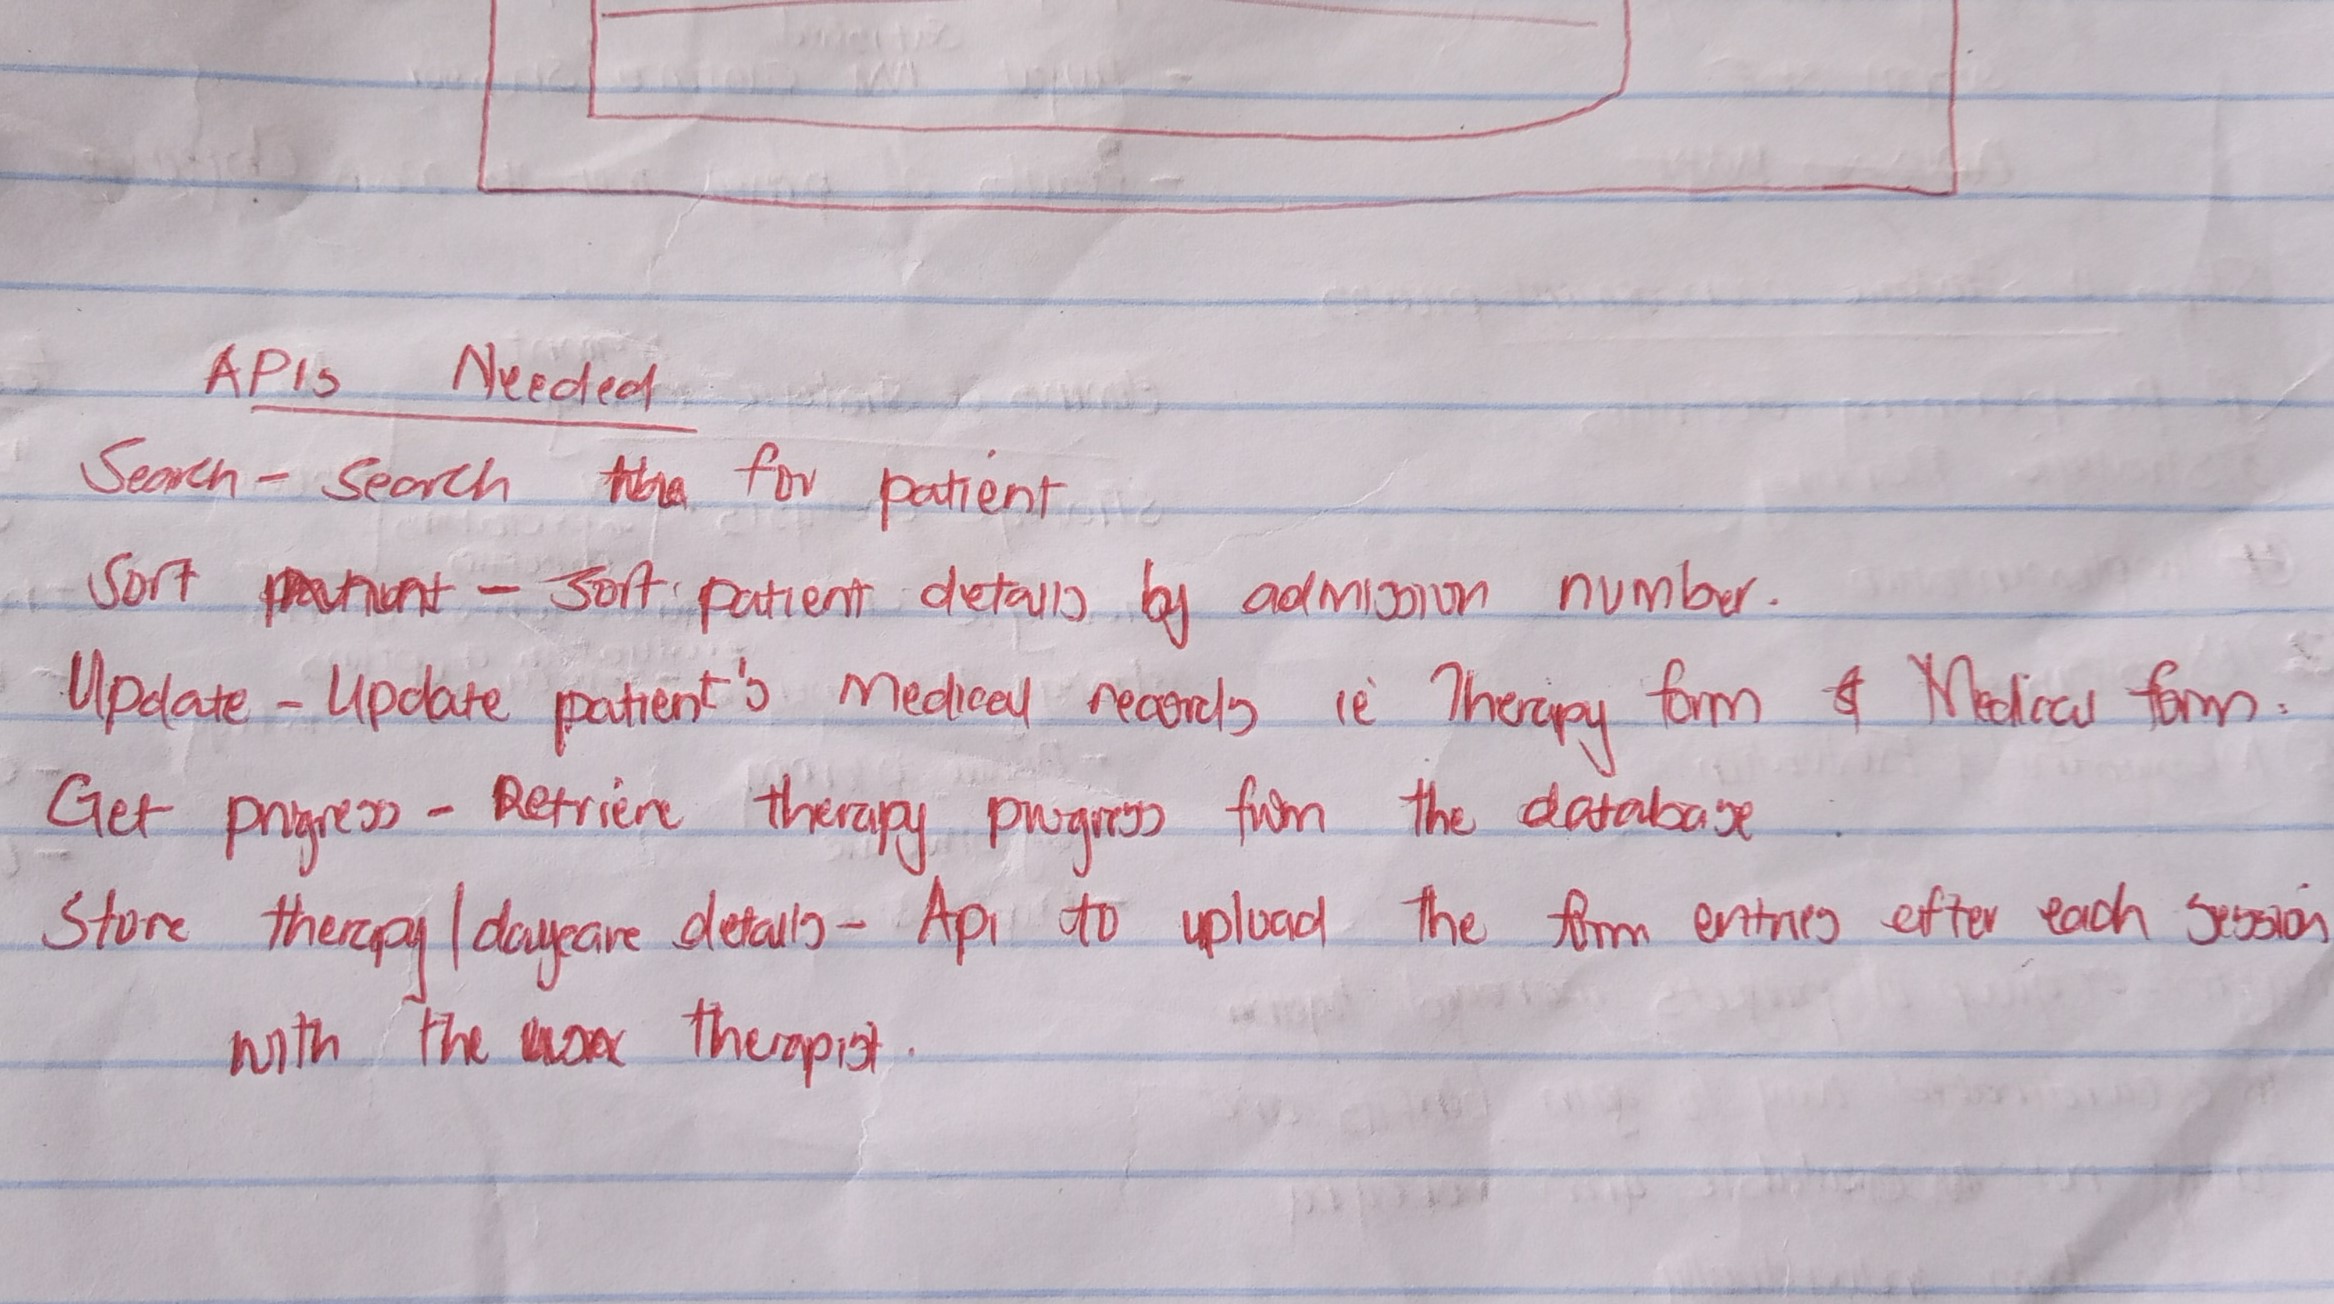 APIs Needed
Search - Search for patient
Sort patient - Sort patient details by admission number.
Update - Update patient's Medical records ie Therapy form & Medical form.
Get progress - Retrieve therapy progress from the database
Store therapy/daycare details - Api to upload the form entries after each session
with the therapist.